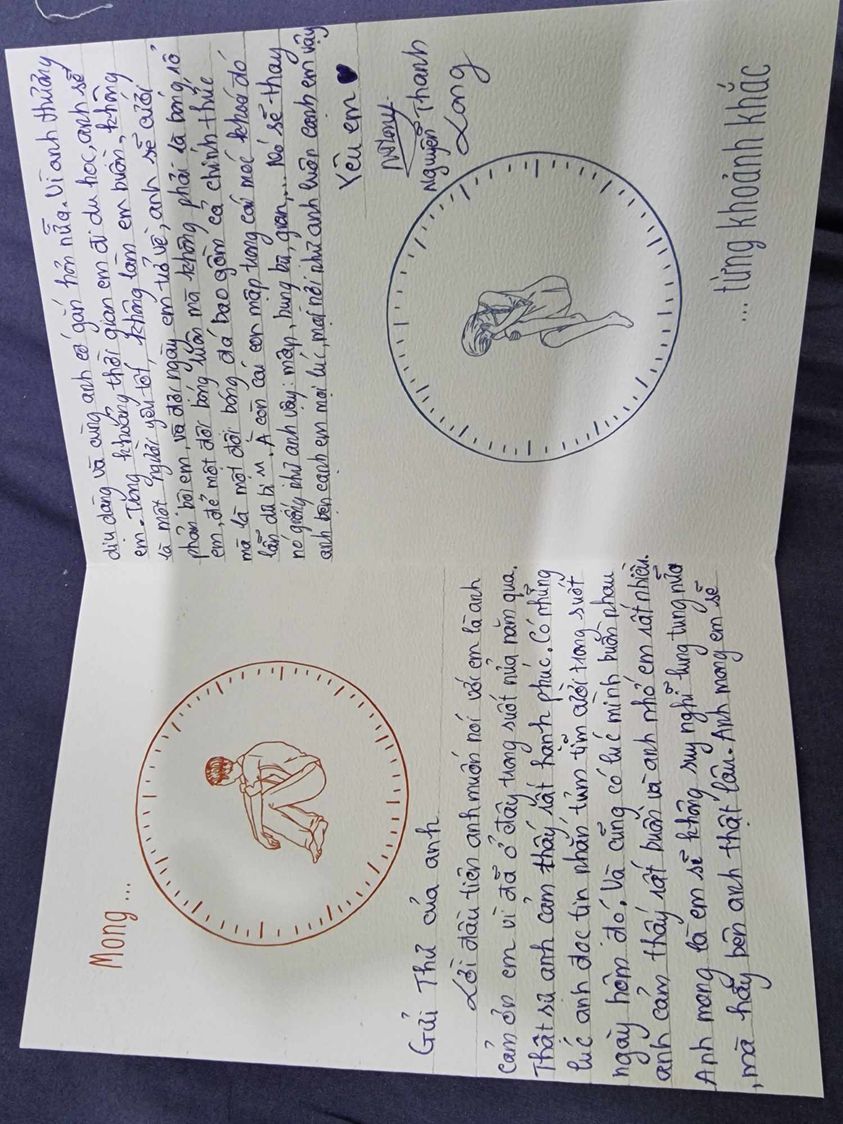 Mong ...
Gửi Thư của anh.
Lời đầu tiên anh muốn nói với em là anh
cảm ơn em vì đã ở đây trong suốt nửa năm qua.
Thật sự anh cảm thấy rất hạnh phúc. Có những
lúc anh đọc tin nhắn tủm tỉm cười trong suốt
ngày hôm đó. Và cũng có lúc mình buồn nhau
anh cảm thấy rất buồn và anh nhớ em rất nhiều.
Anh mong là em sẽ không suy nghĩ lung tung nữa
, mà hãy bên anh thật lâu. Anh mong em sẽ
dịu dàng và cùng anh cố gắn hơn nữa. Vì anh thương
em. Trong khoảng thời gian em đi du học, anh sẽ
là một người yêu tốt, không làm em buồn, không
phản bội em, và đợi ngày em trở về, anh sẽ cưới
em, để một đôi bóng luôn mà không phải là bóng số
mà là một đôi bóng đá bao gồm cả chính thức
lẫn dự bị. À còn cái con mập trong cái móc khoá đó
nó giống như anh vậy: mập, bung bư, gian,... Nó sẽ thay
anh bên cạnh em mọi lúc, mọi nơi như anh luôn cạnh em vậy
Yêu em
Nguyễn Thanh
Long
.... từng khoảnh khắc